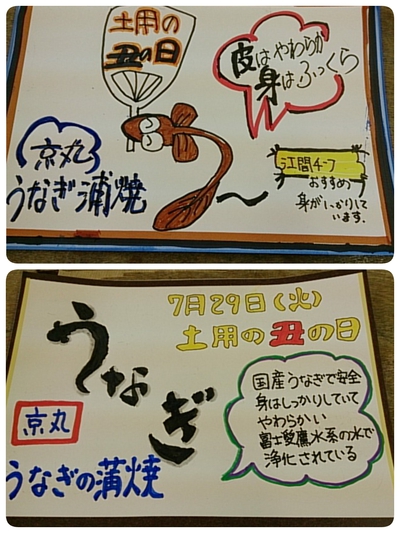 土用の
丑の日
皮はやわらか
身はふっくら
京丸
うなぎ蒲焼
江間チーフ
おすすめ
身がしっかりして
います。
7月29日(火)
土用の丑の日
うなぎ
京丸
うなぎの蒲焼
国産うなぎで安全
身はしっかりしていて
やわらかい
富士愛鷹水系の水で
浄化されている